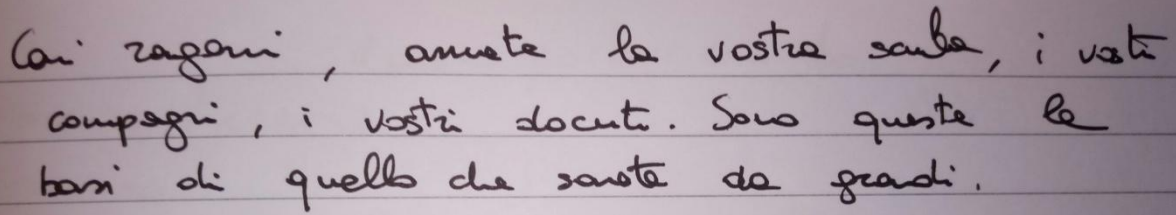 Cari ragazzi, amate la vostra scuola, i vostri
compagni, i vostri docenti. Sono queste le
basi di quello che sarete da grandi.